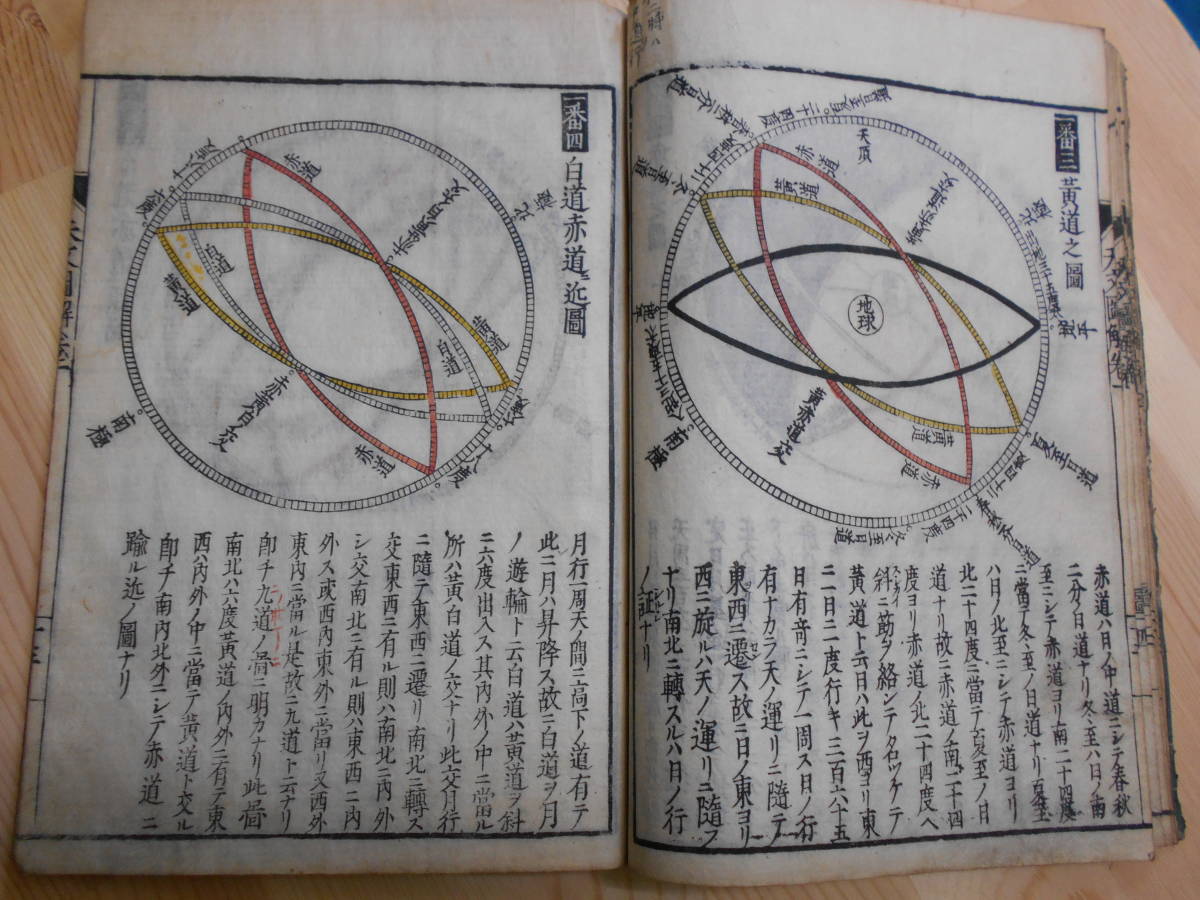 一番三 黄道之圖
天頂
北極
地平
地球
赤道
黄道
黄赤道交
黄道
赤道
南極
夏至日道
冬至日道
赤道ハ日ノ中道ニシテ春秋
二分ノ日道ナリ冬至ハ日ノ南
至ニシテ赤道ヨリ南二十四度
ニ當テ冬至ノ日道ナリ夏至
ハ日ノ北至ニシテ赤道ヨリ
北二十四度ニ當テ夏至ノ日
道ナリ故ニ赤道ノ南二十四
度ヨリ赤道ノ北二十四度ヘ
斜ニ筋ヲ絡シテ名ツケテ
黄道ト云日ハ此ヲ西ヨリ東
ニ一日ニ一度行キ三百六十五
日有竒ニシテ一周ス日ノ行
有ナカラ天ノ運リニ隨テ
東西ニ遷ス故ニ日ノ東ヨリ
西ニ旋ルハ天ノ運リニ隨フ
ナリ南北ニ轉スルハ日ノ行
ノ証ナリ
一番四 白道赤道ニ近圖
北極
赤道
白道
黄道
黄道
白道
赤黄白交
赤道
南極
六度
十八度
月行一周天ノ間ニ高下ノ道有テ
此ニ月ハ昇降ス故ニ白道ヲ月
ノ遊輪ト云白道ハ黄道ヲ斜
ニ六度出入ス其内外ノ中ニ當ル
所ハ黄白道ノ交ナリ此交月行
ニ隨テ東西ニ遷リ南北ニ轉ス
交東西ニ有ル則ハ南北ニ内外
シ交南北ニ有ル則ハ東西ニ内
外ス或西内東外ニ當リ又西外
東内ニ當ル是故ニ九道ト云ナリ
即チ九道ノ圖ニ明カナリ此圖
南北ハ六度黄道ノ内外ニ有テ東
西ハ内外ノ中ニ當テ黄道ト交ル
即チ南内北外ニシテ赤道ニ
踰ル近ノ圖ナリ